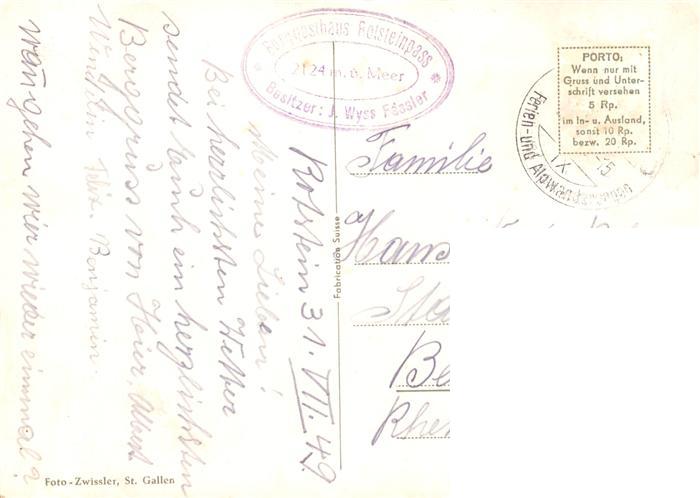 Berggasthaus Rotsteinpass
2124 m. ü. Meer
Besitzer: J. Wyss Fässler
PORTO:
Wenn nur mit
Gruss und Unter-
schrift versehen
5 Rp.
im In- u. Ausland,
sonst 10 Rp.
bezw. 20 Rp.
Ferien- und Alpwanderungen
Rotstein 31. VII. 49.
Meine Lieben!
Bei herrlichsten Wetter
sendet Euch ein herzlichsten
Berggruss von Heier. Albert
Wendelin Felix. Benjamin.
wan gehen wier wieder einmal?
Familie
Hans
Fabrication Suisse
Foto-Zwissler, St. Gallen